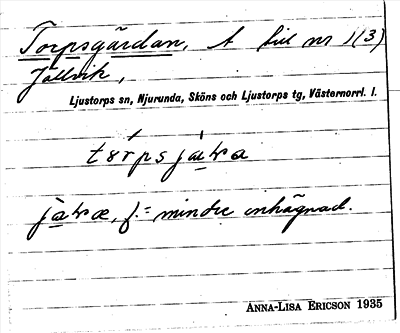 Torpsgärdan, A till nr 1(3)
Jällvik,
Ljustorps sn, Njurunda, Sköns och Ljustorps tg, Västernorrl. l.
mindre inhägnad.
ANNA-LISA ERICSON 1935